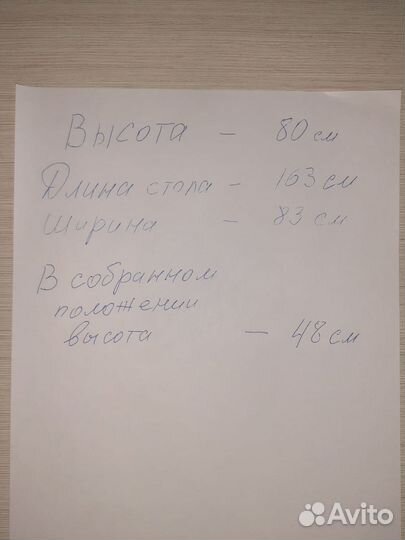 Высота – 80 см
Длина стола – 163 см
Ширина – 83 см
В собранном
положении
высота – 48 см
Avito